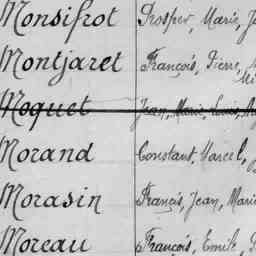 Monsifrot Prosper, Marie, J
Montjaret François, Pierre, M
Moquet Jean, Marie, Louis, Au
Morand Constant, Marcel,
Morasin François, Jean, Marie
Moreau François, Emile,